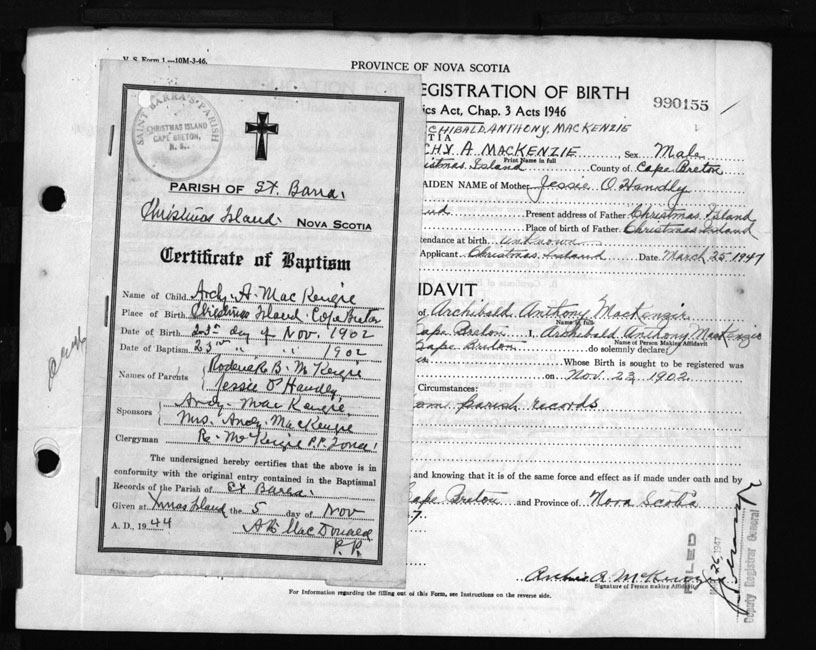 V. S. Form 1.—10M-3-46.
PROVINCE OF NOVA SCOTIA
REGISTRATION OF BIRTH
ics Act, Chap. 3 Acts 1946
990155
CHIBALD ANTHONY MACKENZIE
TIA
CHY A MACKENZIE Sex Male
Print Name in full
istmas Island County of Cape Breton
AIDEN NAME of Mother Jessie O Handly
nd Present address of Father Christmas Island
Place of birth of Father Christmas Island
tendance at birth unknown
Applicant Christmas Island Date March 25 1947
IDAVIT
of Archibald Anthony MacKenzie
Name in full
Cape Breton I, Archibald Anthony MacKenzie
Name of Person Making Affidavit
Cape Breton do solemnly declare
Whose Birth is sought to be registered was
on Nov. 23, 1902
Circumstances:
Parish records
and knowing that it is of the same force and effect as if made under oath and by
Cape Breton and Province of Nova Scotia
7.
Archie A. McKenzie
Signature of Person making Affidavit
FILED
26 1947
Deputy Registrar General
For Information regarding the filling out of this Form, see Instructions on the reverse side.
SAINT BARRA'S PARISH
CHRISTMAS ISLAND
CAPE BRETON,
N. S.
PARISH OF St. Barra,
Christmas Island. NOVA SCOTIA
Certificate of Baptism
Name of Child Archy. A. MacKenzie
Place of Birth Christmas Island. Cape Breton
Date of Birth 23rd day of Nov. 1902
Date of Baptism 23rd " " 1902
Names of Parents Roderick B. McKenzie
Jessie O'Handly
Sponsors Andy. MacKenzie
Mrs. Andy. MacKenzie
Clergyman R. McKenzie P.P.
The undersigned hereby certifies that the above is in
conformity with the original entry contained in the Baptismal
Records of the Parish of St Barra.
Given at Xmas Island the 5 day of Nov
A. D., 1944 MacDonald
P. P.